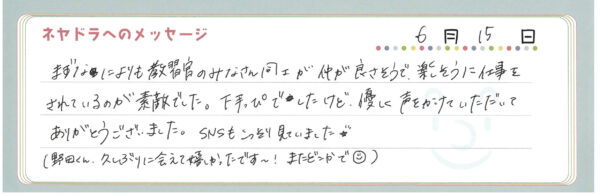 ネヤドラへのメッセージ
6月15日
まずなによりも教習官のみなさん同士が仲が良さそうで、楽しそうに仕事を
されているのが素敵でした。下手っぴでしたけど、優しく声をかけていただいて
ありがとうございました。SNSもこっそり見ていました
(野田くん、久しぶりに会えて嬉しかったです〜! またどこかで☺)